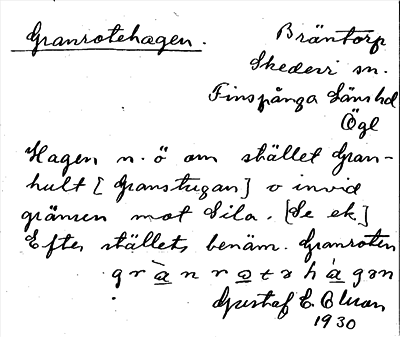 Granrotehagen.
Bräntorp
Skedevi sn.
Finspånga länshd
Ögl
Hagen n. ö om stället Gran-
hult [Granstugan] o invid
gränsen mot Sila. [Se ek.]
Efter ställets benäm. Granroten
grànrotəhágən
Gustaf E. Olsson
1930